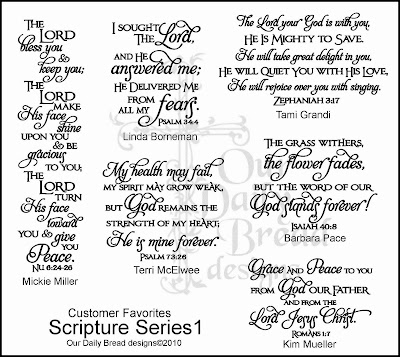 The
Lord
bless you
& keep you;
The
Lord
make
His face
shine
upon you
& be
gracious
to you;
The
Lord
turn
His face
toward
you & give
you
Peace.
Nu 6:24-26
Mickie Miller
I sought
The Lord,
and He
answered me;
He delivered me
from
all my fears.
Psalm 34:4
Linda Borneman
The Lord your God is with you,
He is mighty to save.
He will take great delight in you,
He will quiet you with His love,
He will rejoice over you with singing.
Zephaniah 3:17
Tami Grandi
My health may fail,
my spirit may grow weak,
but God remains the
strength of my heart;
He is mine forever.
Psalm 73:26
Terri McElwee
The grass withers,
the flower fades,
but the word of our
God stands forever!
Isaiah 40:8
Barbara Pace
Grace and Peace to you
from God our Father
and from the
Lord Jesus Christ.
Romans 1:7
Kim Mueller
Our
Daily
Bread
designs
Customer Favorites
Scripture Series1
Our Daily Bread designs©2010